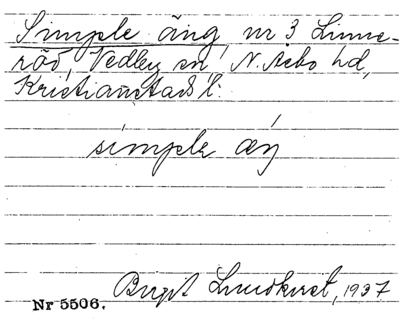 Simple äng, nr 3 Linne-
röd, Vedby sn N. Åsbo hd,
Kristianstads l.
simple æŋ
Birgit Lundkvist, 1937
Nr 5506.